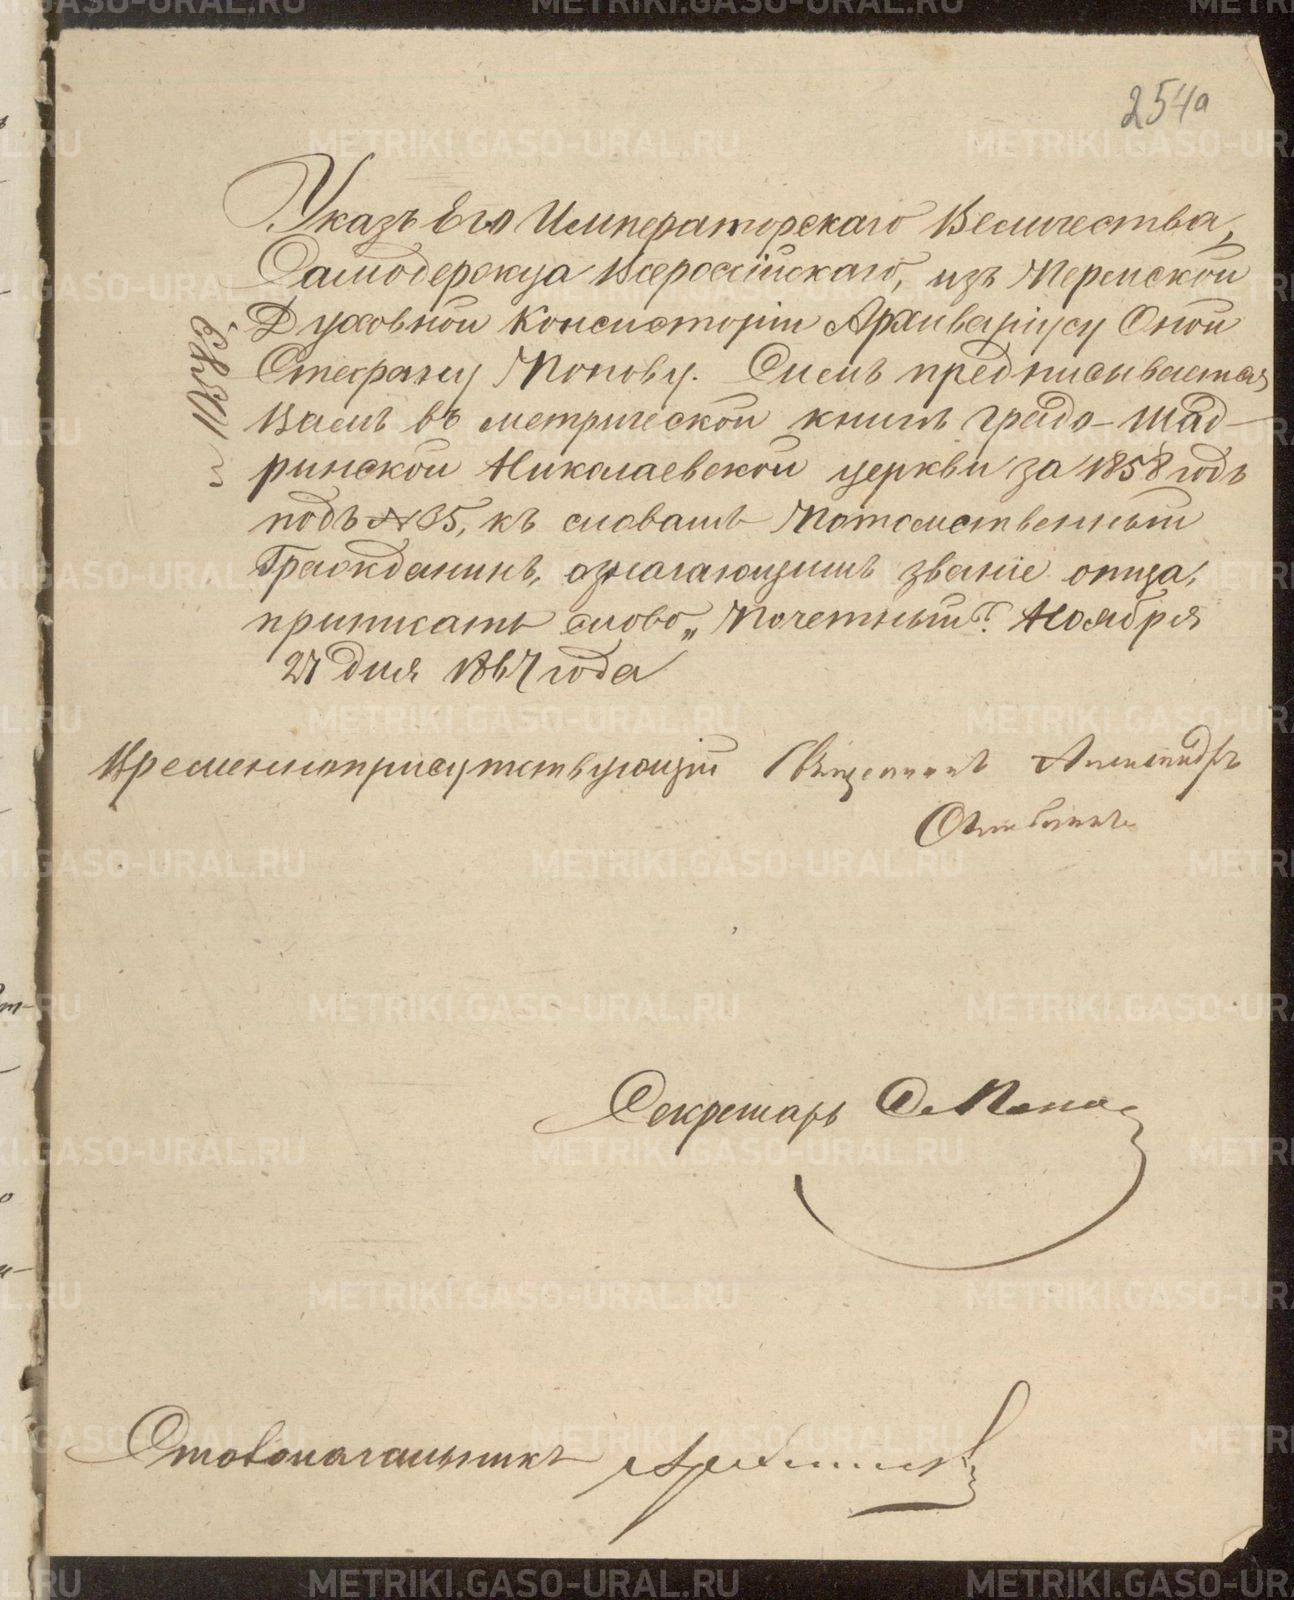 254а
Указъ Его Императорскаго Величества,
Самодержца Всероссійскаго, изъ Пермской
Духовной Консисторіи Архиваріусу Оной
Стефану Попову. Симъ предписывается
Вамъ въ метрической книгѣ градо-Шад-
ринской Николаевской церкви за 1858 годъ
подъ № 35, къ словамъ Потомственный
Гражданинъ, означающимъ званіе отца,
приписать слово „Почетный". Ноября
27 дня 1867 года
№ 10386
Временноприсутствующій Священникъ Александръ
Секретарь
Столоначальникъ
METRIKI.GASO-URAL.RU